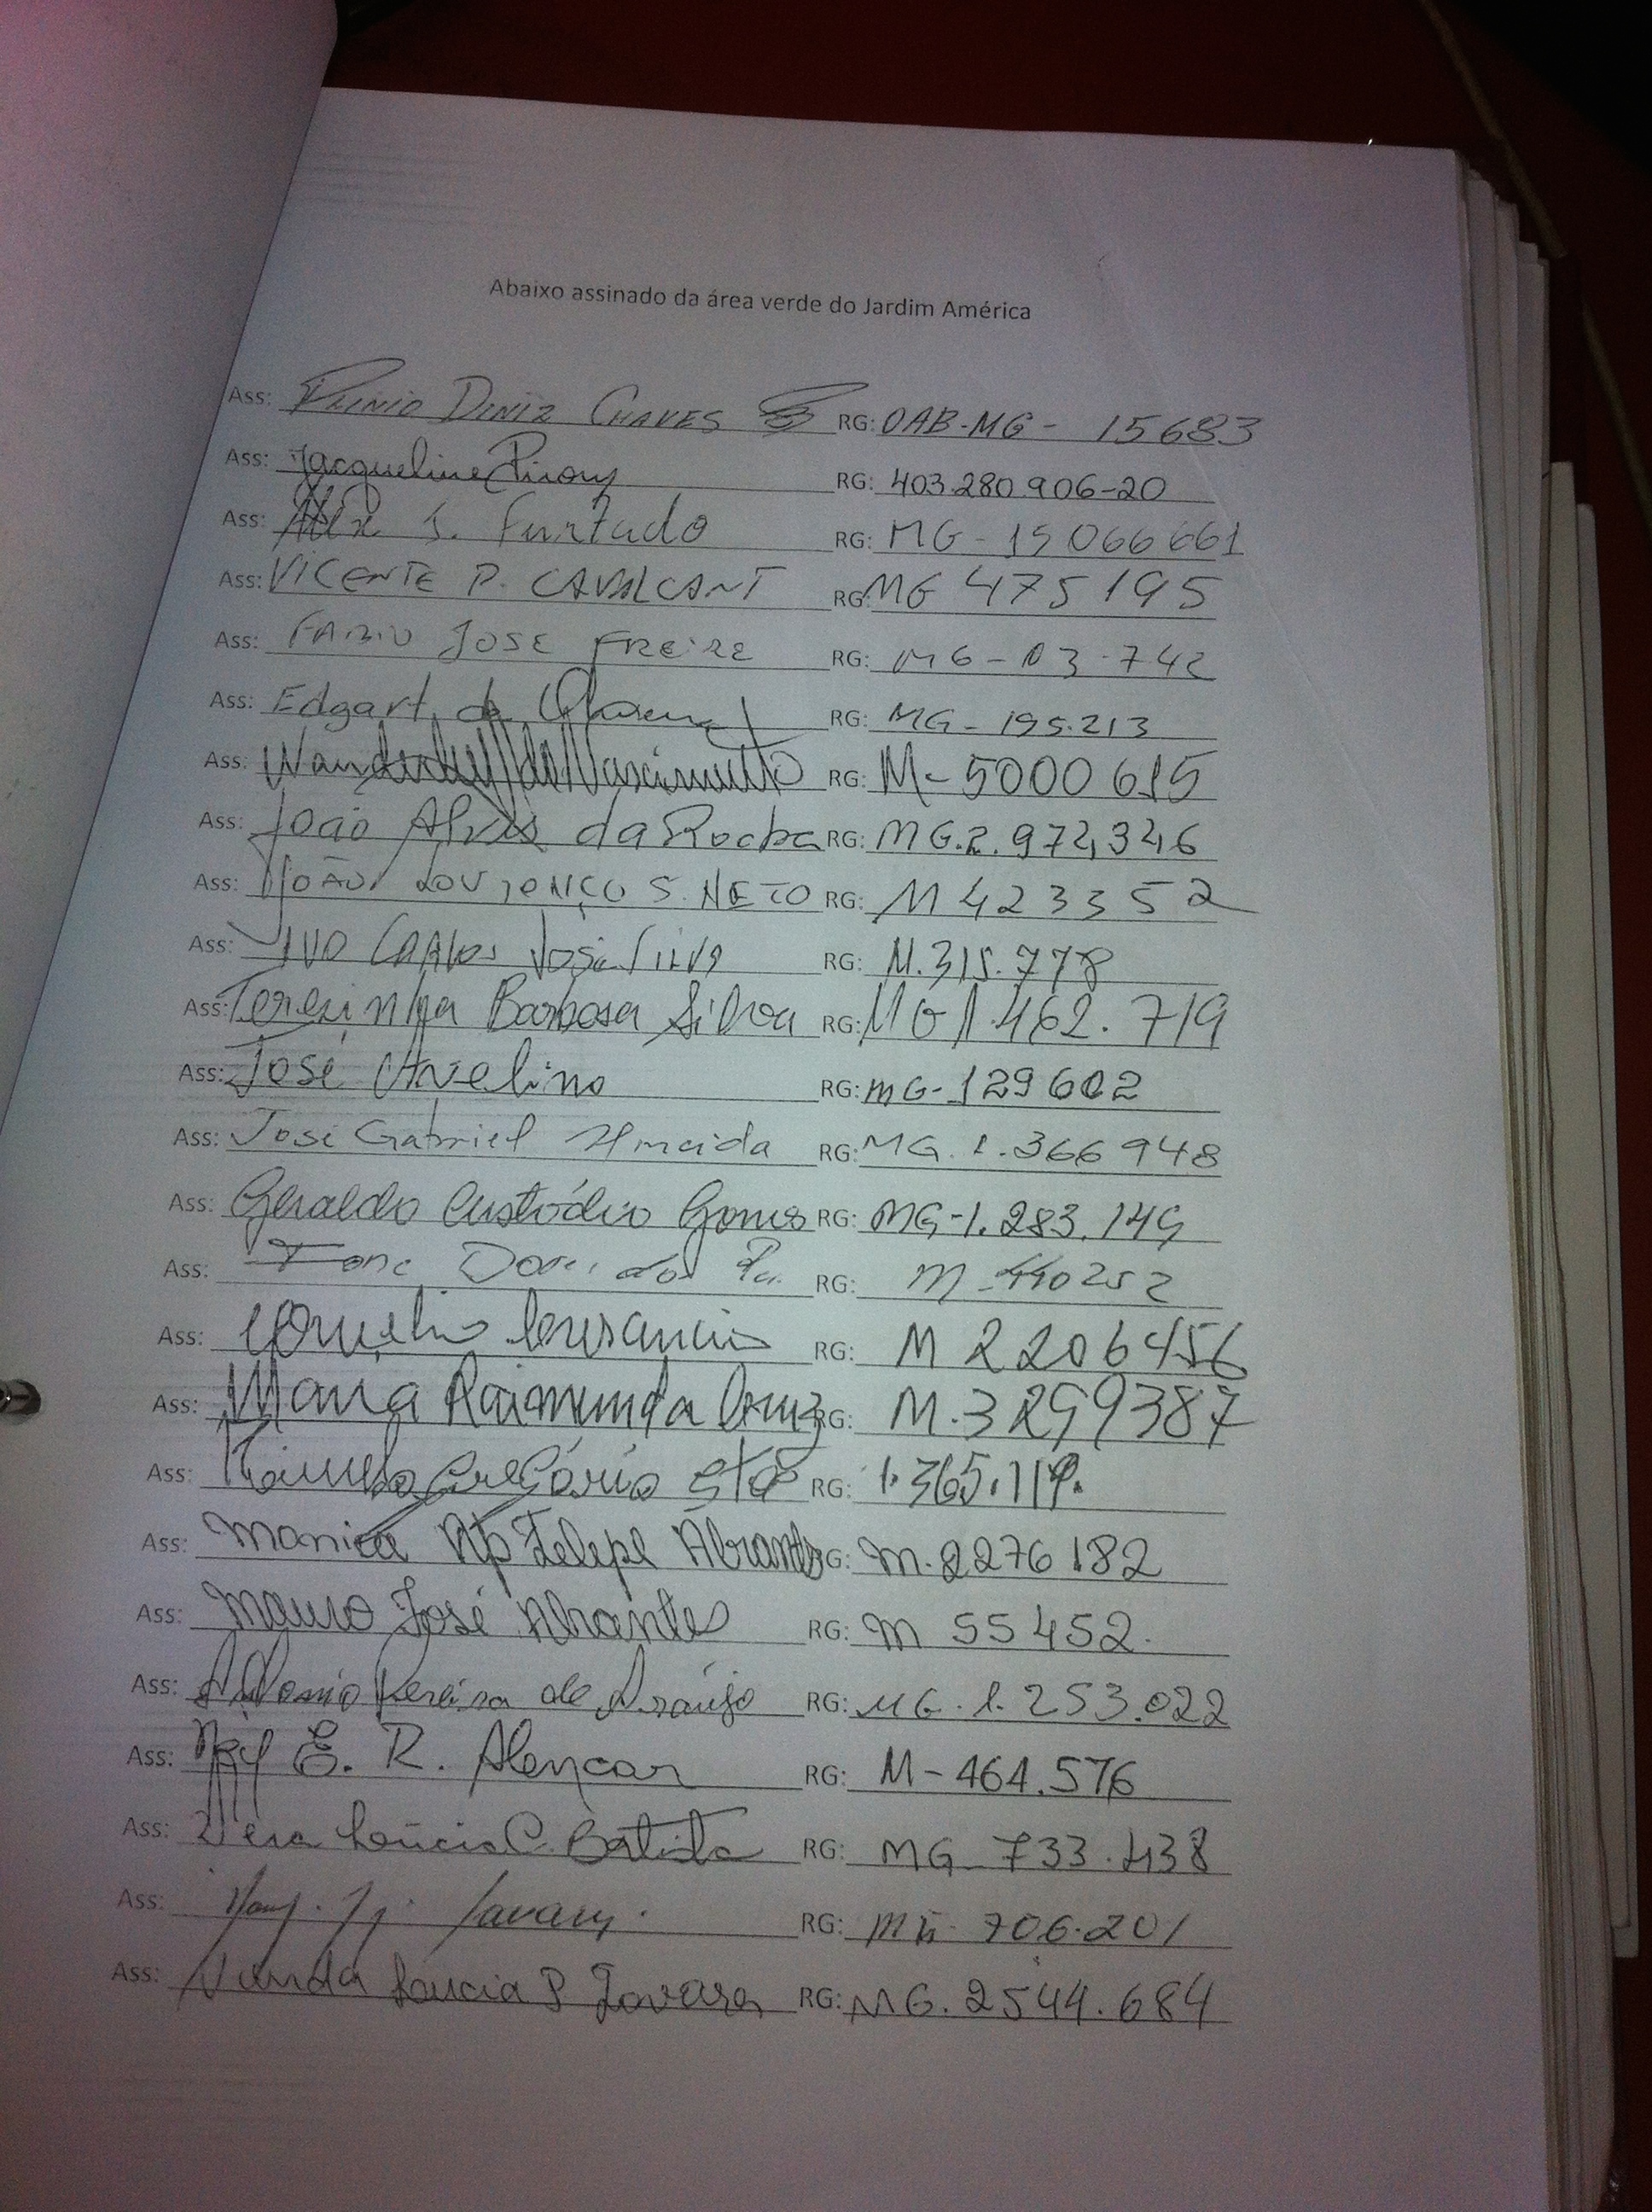 Abaixo assinado da área verde do Jardim América
Ass: Plinio Diniz Chaves RG: OAB-MG - 15683
Ass: Jacqueline RG: 403.280.906-20
Ass: Alex S. Furtado RG: MG-15066661
Ass: VICENTE P. CAVALCANT RG: MG 475195
Ass: FABIO JOSE FREIRE RG: MG-03.742
Ass: Edgart de RG: MG-195.213
Ass: Wanderley do Nascimento RG: M-5000615
Ass: João Alves da Rocha RG: MG.2.972,346
Ass: JOÃO LOURENÇO S. NETO RG: M 423352
Ass: IVO CARLOS José Silva RG: M.315.778
Ass: Terezinha Barbosa Silva RG: MG 1.462.719
Ass: José Avelino RG: MG-129602
Ass: José Gabriel Almeida RG: MG.1.366948
Ass: Geraldo Custódio Gomes RG: MG-1.283.149
Ass: RG: M-440252
Ass: RG: M 2206456
Ass: Maria Raimunda Cruz RG: M.3299387
Ass: Gregório RG: 1.365.119.
Ass: Monica Ap Felipe Abrantes RG: M.2276182
Ass: Mauro José Abrantes RG: M 55452.
Ass: Antonio Pereira de Araújo RG: MG.1.253.022
Ass: E. R. Alencar RG: M-464.576
Ass: Vera Lúcia C. Batista RG: MG-733.438
Ass: RG: MG-706.201
Ass: Vanda Lucia P RG: MG.2544.684